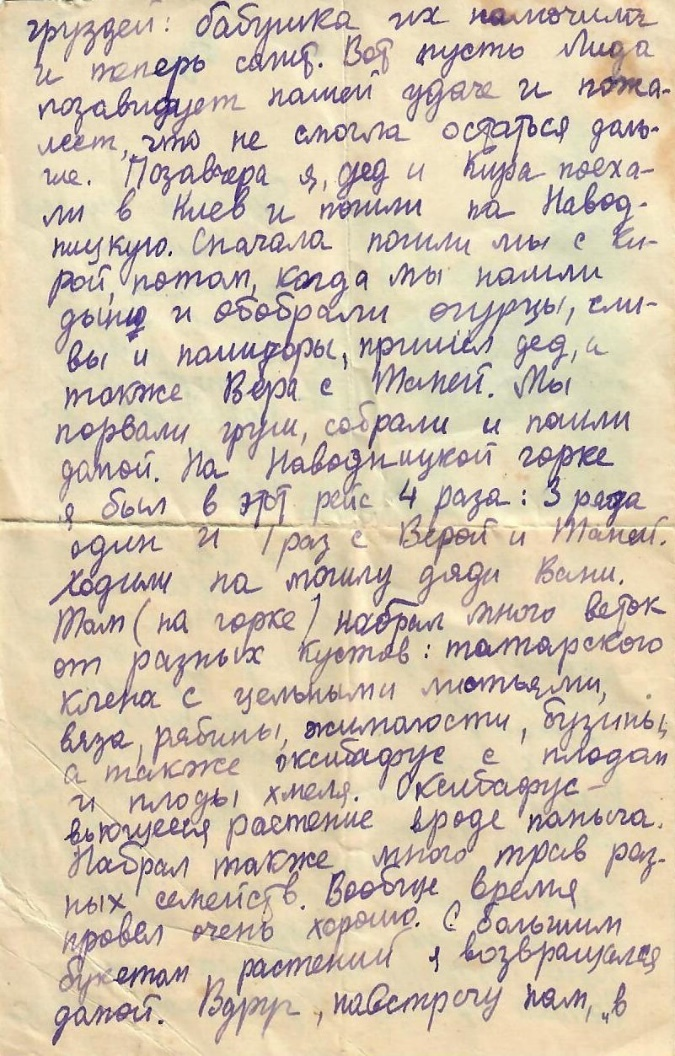 груздей: бабушка их намочила
и теперь солит. Вот пусть Лида
позавидует нашей удаче и пожа-
леет, что не смогла остаться даль-
ше. Позавчера я, дед и Кира поеха-
ли в Киев и пошли на Навод-
ницкую. Сначала пошли мы с Ки-
рой, потом, когда мы нашли
дыню и обобрали огурцы, сли-
вы и помидоры, пришёл дед, а
также Вера с Таней. Мы
порвали груши, собрали и пошли
домой. На Наводницкой горке
я был в этот рейс 4 раза: 3 раза
один и 1 раз с Верой и Таней.
Ходили на могилу дяди Вани.
Там (на горке) набрал много веток
от разных кустов: татарского
клена с цельными листьями,
вяза, рябины, жимолости, бузины,
а также оксибафус с плодам
и плоды хмеля. Оксибафус –
вьющееся растение вроде паныча.
Набрал также много трав раз-
ных семейств. Вообще время
провел очень хорошо. С большим
букетом растений я возвращался
домой. Вдруг, навстречу нам, „в